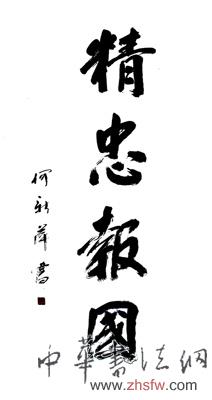 精忠報國
何新萍書
中華書法網
www.zhsfw.com